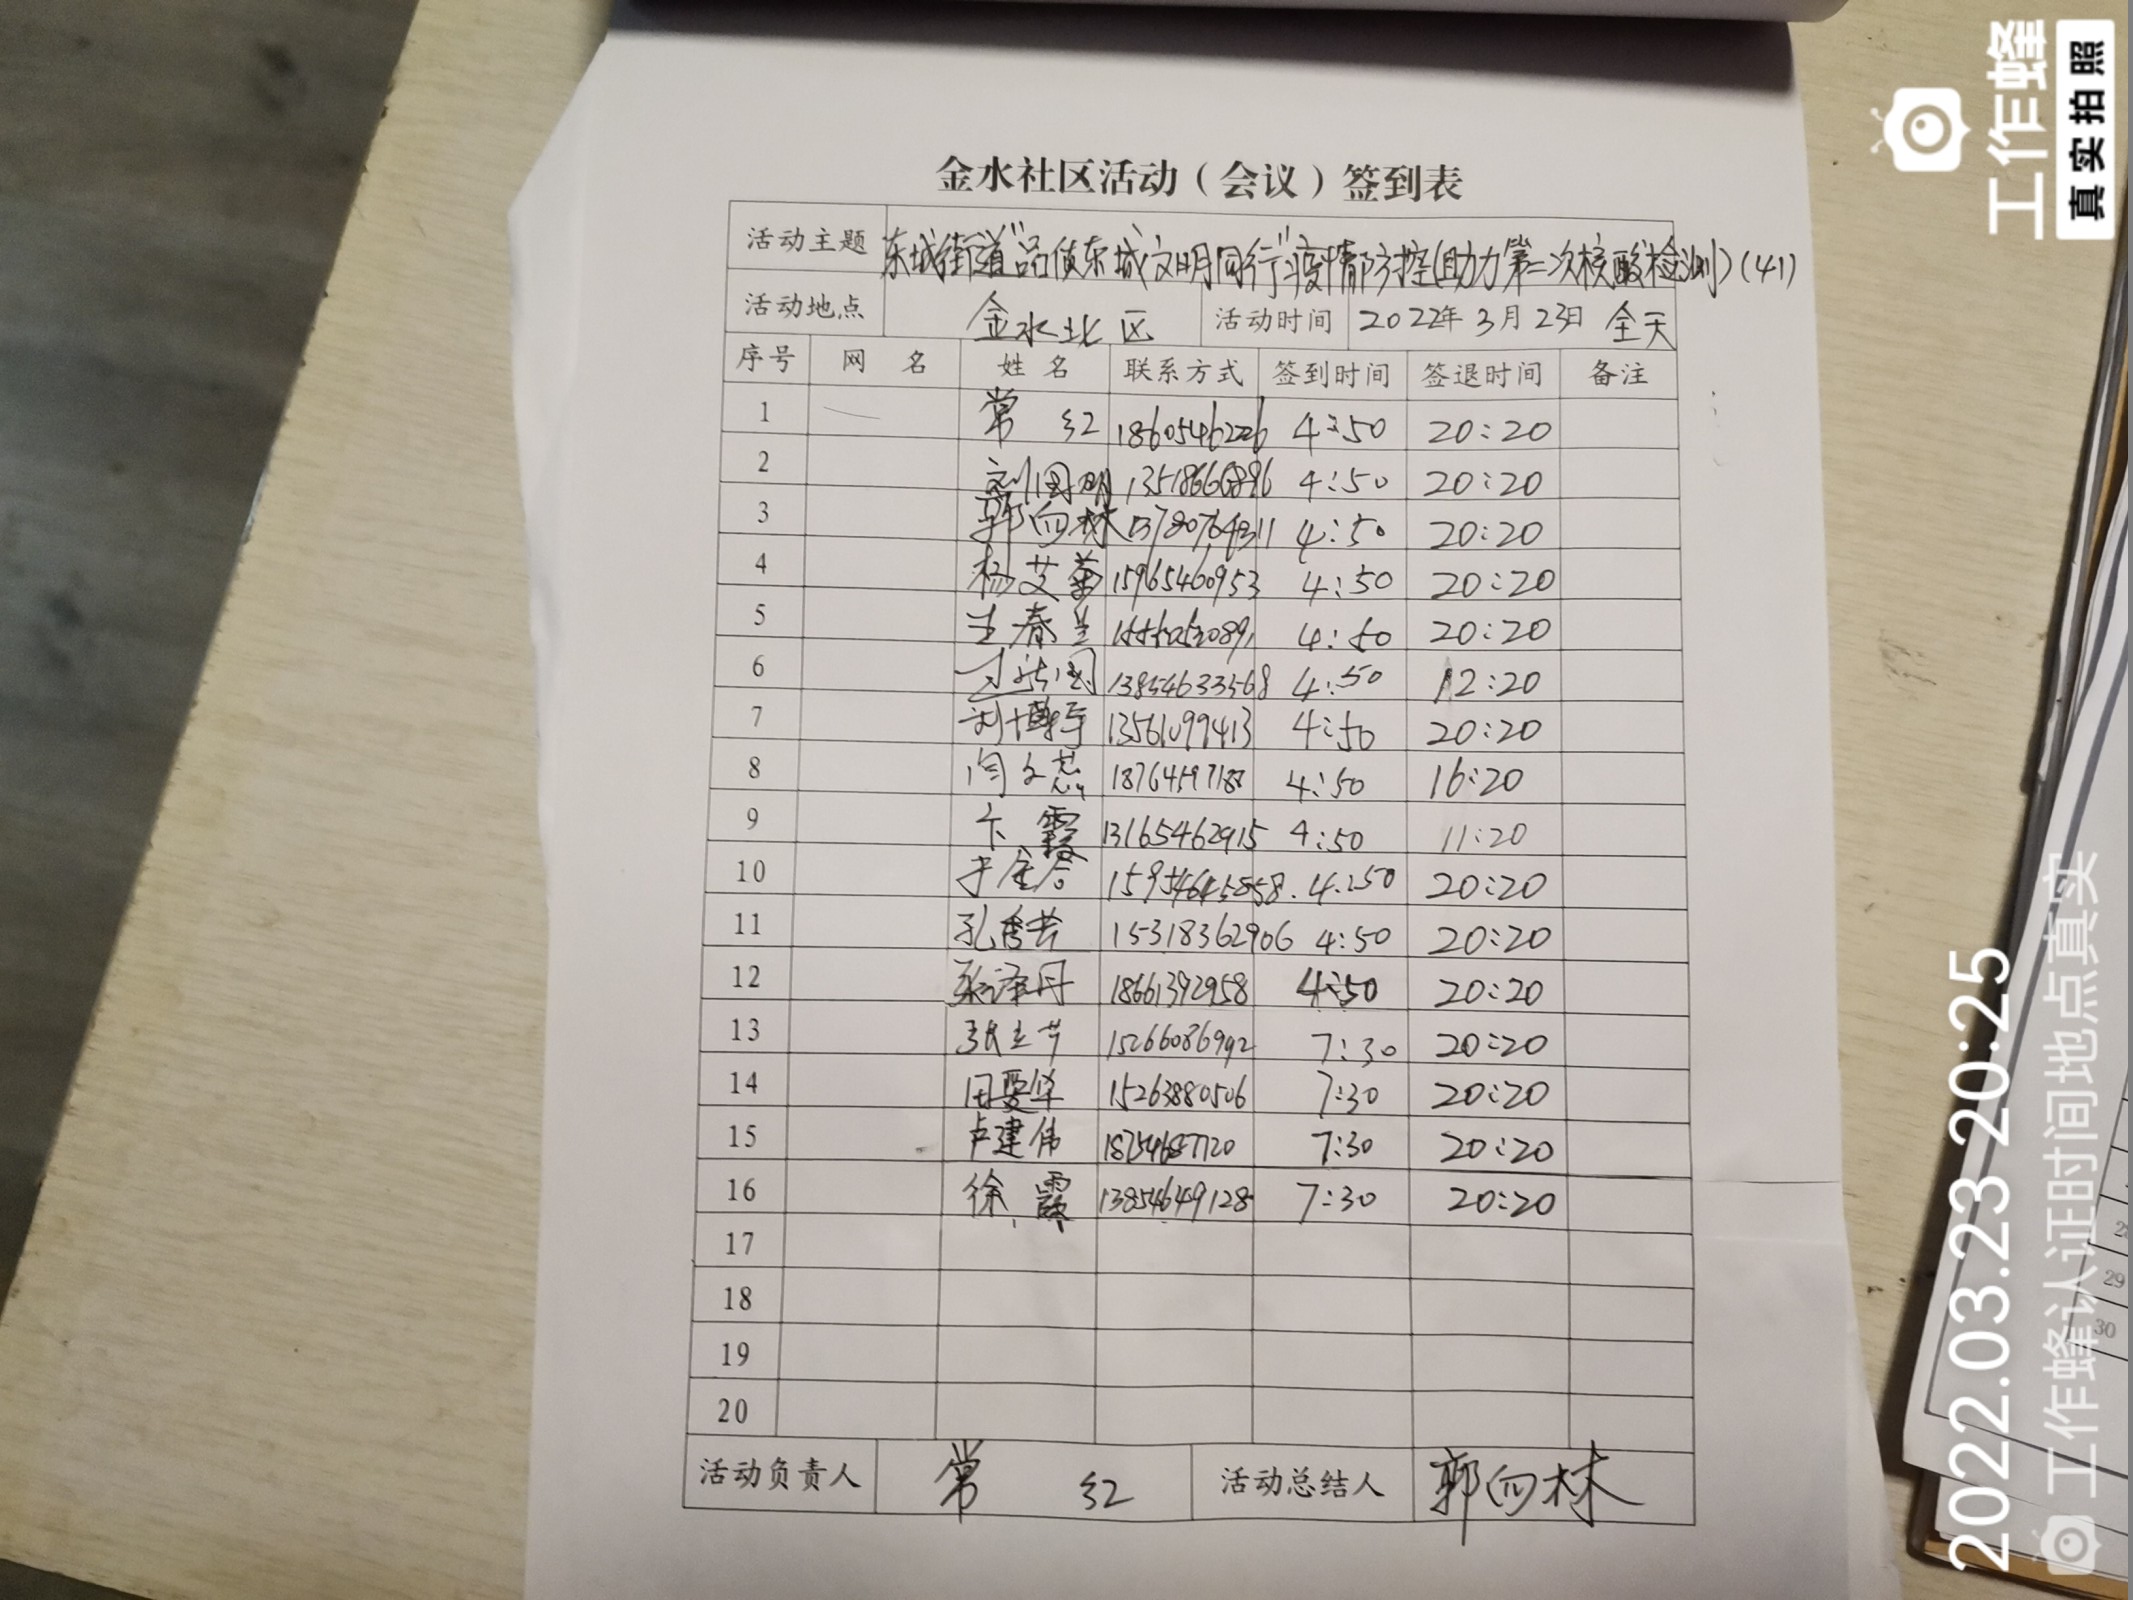 金水社区活动（会议）签到表
活动主题 东城街道"品质东城文明同行"疫情防控(助力第二次核酸检测)(41)
活动地点 金水北区 活动时间 2022年3月23日 全天
序号 网 名 姓 名 联系方式 签到时间 签退时间 备注
1 常 红 18605462226 4:50 20:20
2 刘国明 13518666896 4:50 20:20
3 郭向林 13780764311 4:50 20:20
4 杨艾 15965460953 4:50 20:20
5 春兰 4:50 20:20
6 13854633568 4:50 12:20
7 刘博宇 13561099413 4:50 20:20
8 闫文 4:50 16:20
9 卞 霞 13165462915 4:50 11:20
10 4:50 20:20
11 孔秀芳 15318362906 4:50 20:20
12 张泽丹 18661392958 4:50 20:20
13 张立 15266086992 7:30 20:20
14 田爱华 15263880506 7:30 20:20
15 卢建伟 18254687720 7:30 20:20
16 徐 霞 13854649128 7:30 20:20
17
18
19
20
活动负责人 常 红 活动总结人 郭向林
29
30
工作蜂
真实拍照
2022.03.23 20:25
工作蜂认证时间地点真实